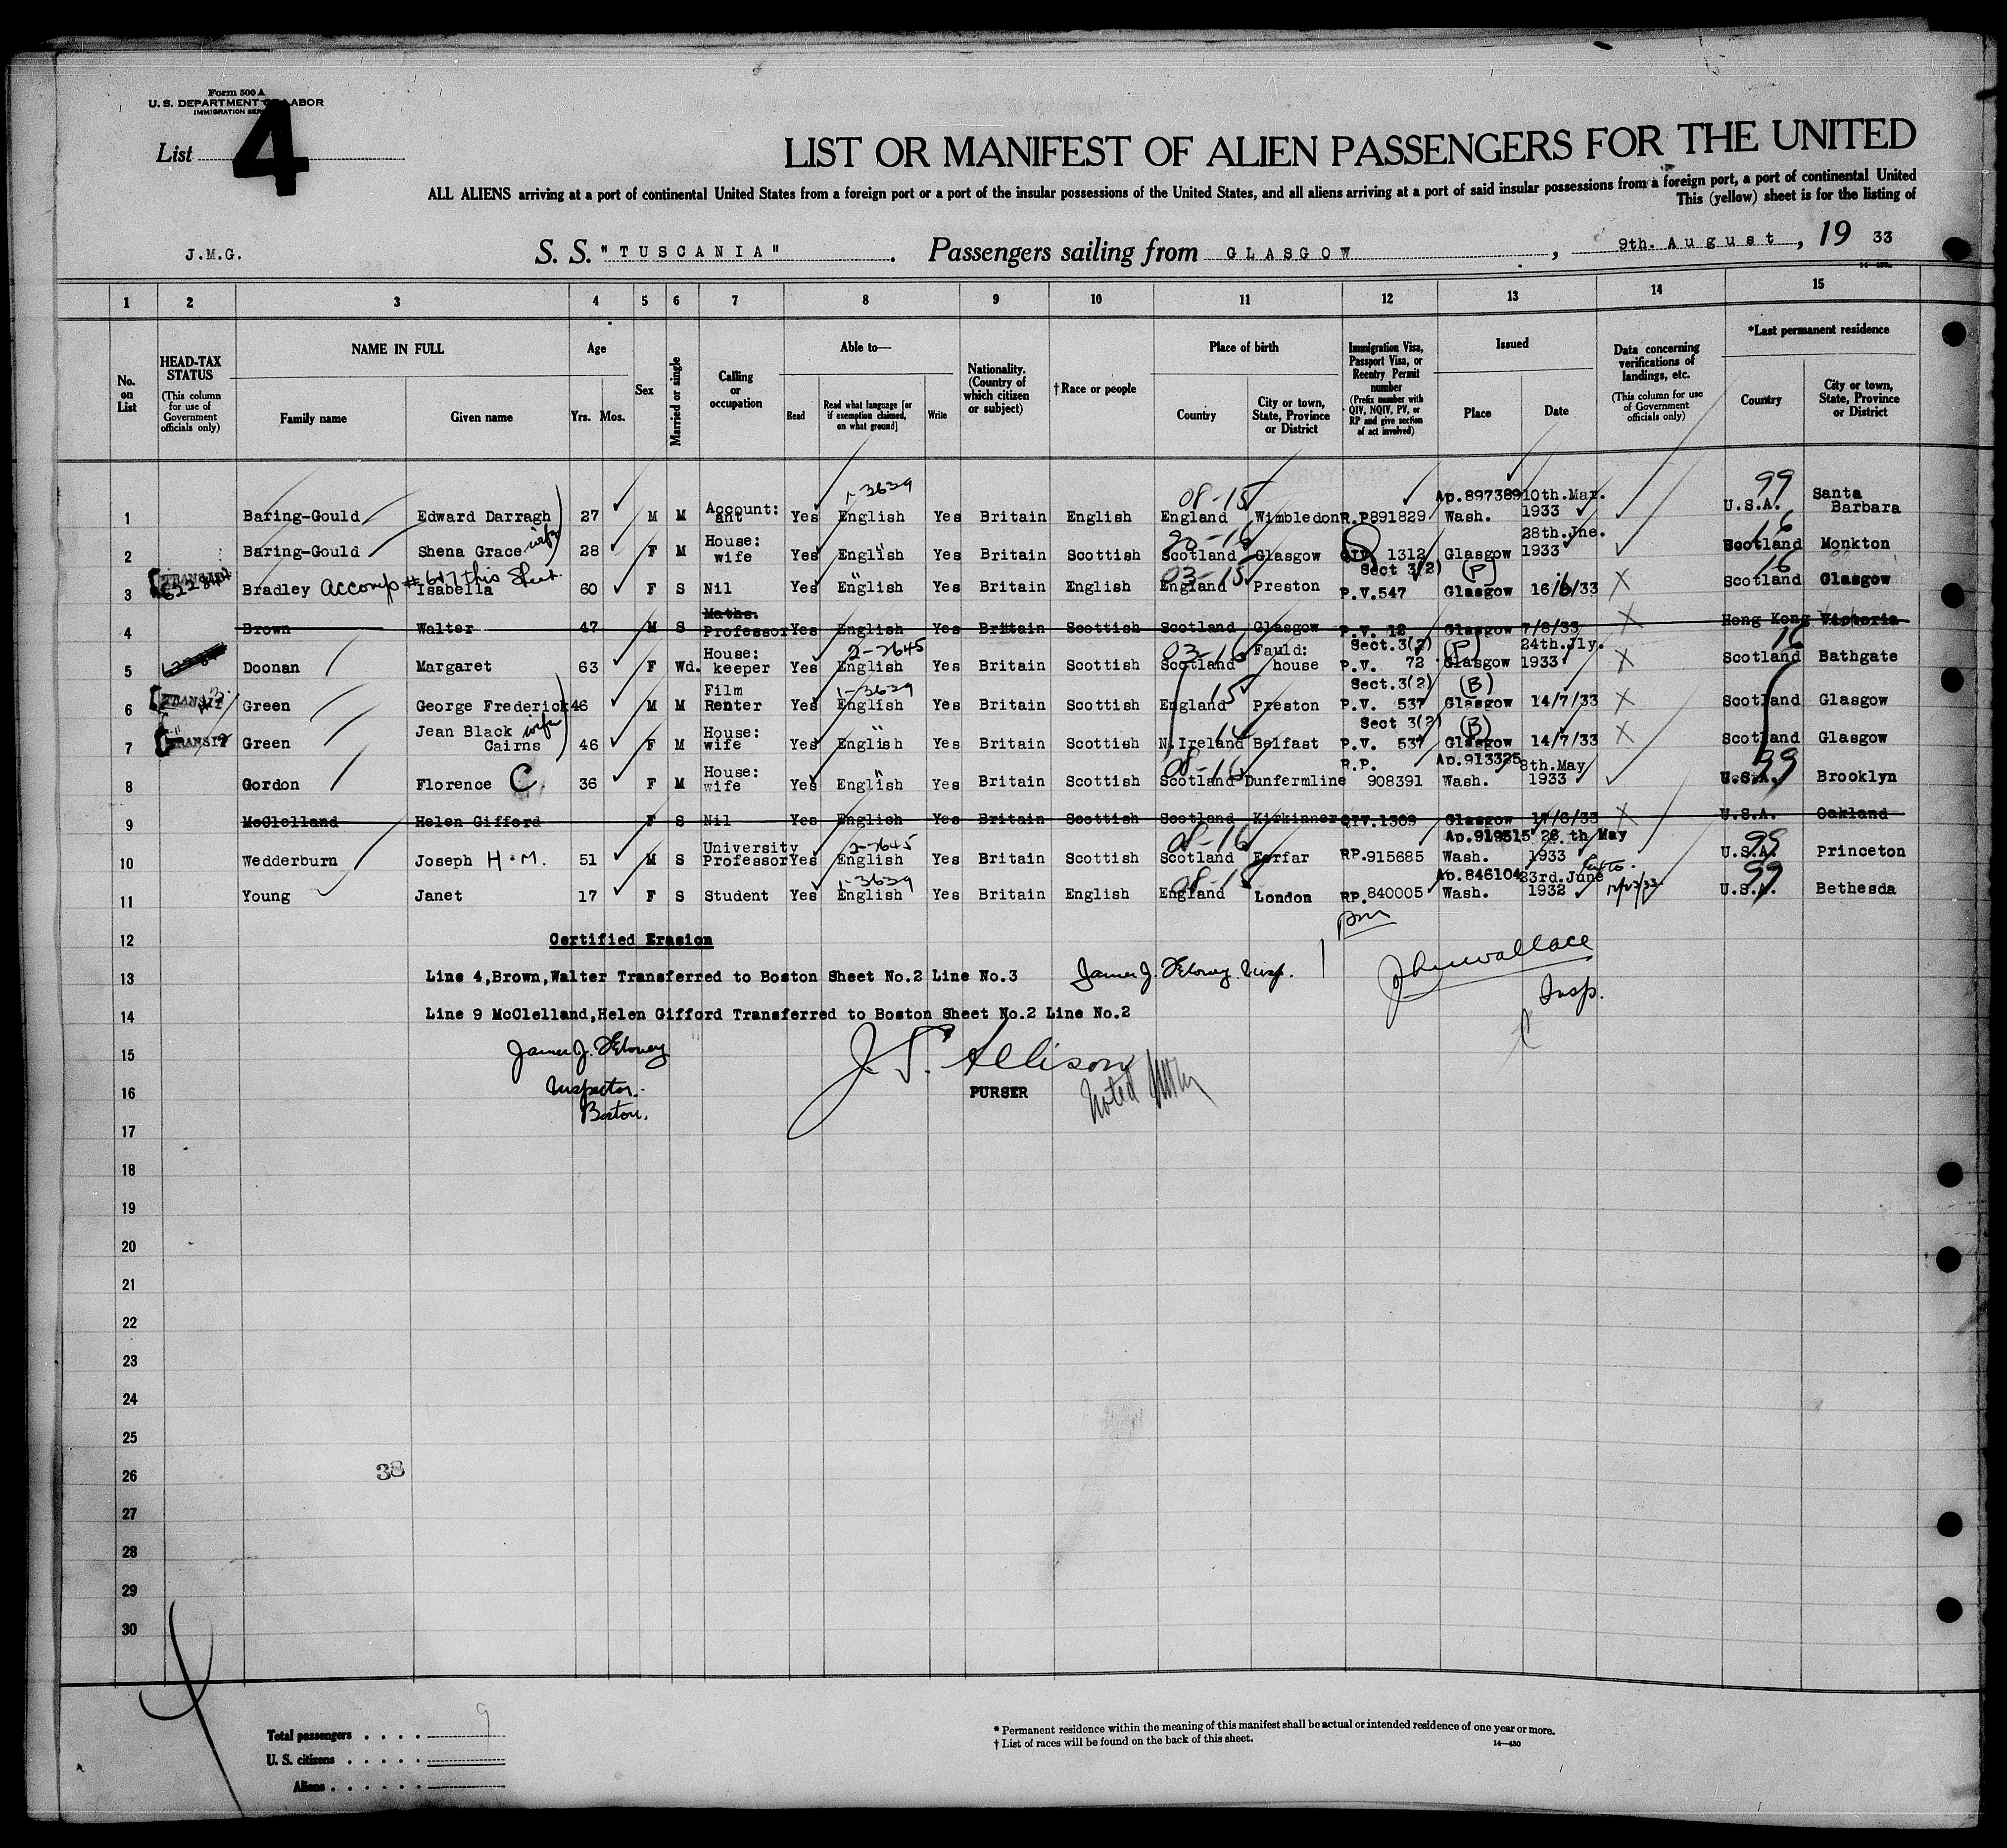 Form 500 A
U. S. DEPARTMENT OF LABOR
IMMIGRATION SERVICE
List 4
LIST OR MANIFEST OF ALIEN PASSENGERS FOR THE UNITED
ALL ALIENS arriving at a port of continental United States from a foreign port or a port of the insular possessions of the United States, and all aliens arriving at a port of said insular possessions from a foreign port, a port of continental United
This (yellow) sheet is for the listing of
J.M.G. S. S. "TUSCANIA" . Passengers sailing from GLASGOW , 9th. August , 19 33
1 2 3 4 5 6 7 8 9 10 11 12 13 14 15
No. on List
HEAD-TAX STATUS (This column for use of Government officials only)
NAME IN FULL Family name Given name
Age Yrs. Mos.
Sex
Married or single
Calling or occupation
Able to— Read Read what language [or if exemption claimed, on what ground] Write
Nationality. (Country of which citizen or subject)
†Race or people
Place of birth Country City or town, State, Province or District
Immigration Visa, Passport Visa, or Reentry Permit number (Prefix number with QIV, NQIV, PV, or RP and give section of act involved)
Issued Place Date
Data concerning verifications of landings, etc. (This column for use of Government officials only)
*Last permanent residence Country City or town, State, Province or District
1 Baring-Gould Edward Darragh 27 M M Account: ant Yes English 1-3629 Yes Britain English 08-15 England Wimbledon R.P891829 Ap.897389 Wash. 10th.Mar. 1933 99 U.S.A. Santa Barbara
2 Baring-Gould Shena Grace wife 28 F M House: wife Yes English " Yes Britain Scottish Scotland Glasgow QIV 1312 Glasgow 28th.Jne. 1933 16 Scotland Monkton
3 TRANSIT Bradley Accomp #6&7 this Sheet. Isabella 60 F S Nil Yes English " Yes Britain English 03-15 England Preston Sect 3(2) P.V.547 (P) Glasgow 16/6/33 X 16 Scotland Glasgow
4 Brown Walter 47 M S Maths. Professor Yes English Yes Britain Scottish Scotland Glasgow P.V. 12 Glasgow 7/8/33 X Hong Kong Victoria
5 Doonan Margaret 63 F Wd. House: keeper Yes English 2-2645 Yes Britain Scottish 03-16 Scotland Fauld: house Sect.3(2) P.V. 72 (P) Glasgow 24th.Jly. 1933 X 16 Scotland Bathgate
6 TRANSIT Green George Frederick 46 M M Film Renter Yes English 1-3629 Yes Britain Scottish 15 England Preston Sect.3(2) P.V. 537 (B) Glasgow 14/7/33 X Scotland Glasgow
7 TRANSIT Green Jean Black Cairns wife 46 F M House: wife Yes English " Yes Britain Scottish 14 N.Ireland Belfast Sect 3(2) P.V. 537 (B) Glasgow 14/7/33 X Scotland Glasgow
8 Gordon Florence C 36 F M House: wife Yes English " Yes Britain Scottish 08-16 Scotland Dunfermline R.P. 908391 Ap.913325 Wash. 8th.May 1933 99 U.S.A. Brooklyn
9 McClelland Helen Gifford F S Nil Yes English Yes Britain Scottish Scotland Kirkinner QIV.1309 Glasgow 17/6/33 X U.S.A. Oakland
10 Wedderburn Joseph H.M. 51 M S University Professor Yes English 2-2645 Yes Britain Scottish 08-16 Scotland Forfar RP.915685 Ap.919515 Wash. 26 th May 1933 99 U.S.A. Princeton
11 Young Janet 17 F S Student Yes English 1-3629 Yes Britain English 08-15 England London RP.840005 Ap.846104 Wash. 23rd.June 1932 99 U.S.A. Bethesda
12 Certified Erasion
13 Line 4,Brown,Walter Transferred to Boston Sheet No.2 Line No.3 Insp.
Insp.
14 Line 9 McClelland,Helen Gifford Transferred to Boston Sheet No.2 Line No.2
15 J. S. Allison
16 Inspector. PURSER Noted
Boston.
17
18
19
20
21
22
23
24
25
26 38
27
28
29
30
Total passengers . . . . 9
U. S. citizens . . . . .
Aliens . . . . . .
* Permanent residence within the meaning of this manifest shall be actual or intended residence of one year or more.
† List of races will be found on the back of this sheet. 14—430